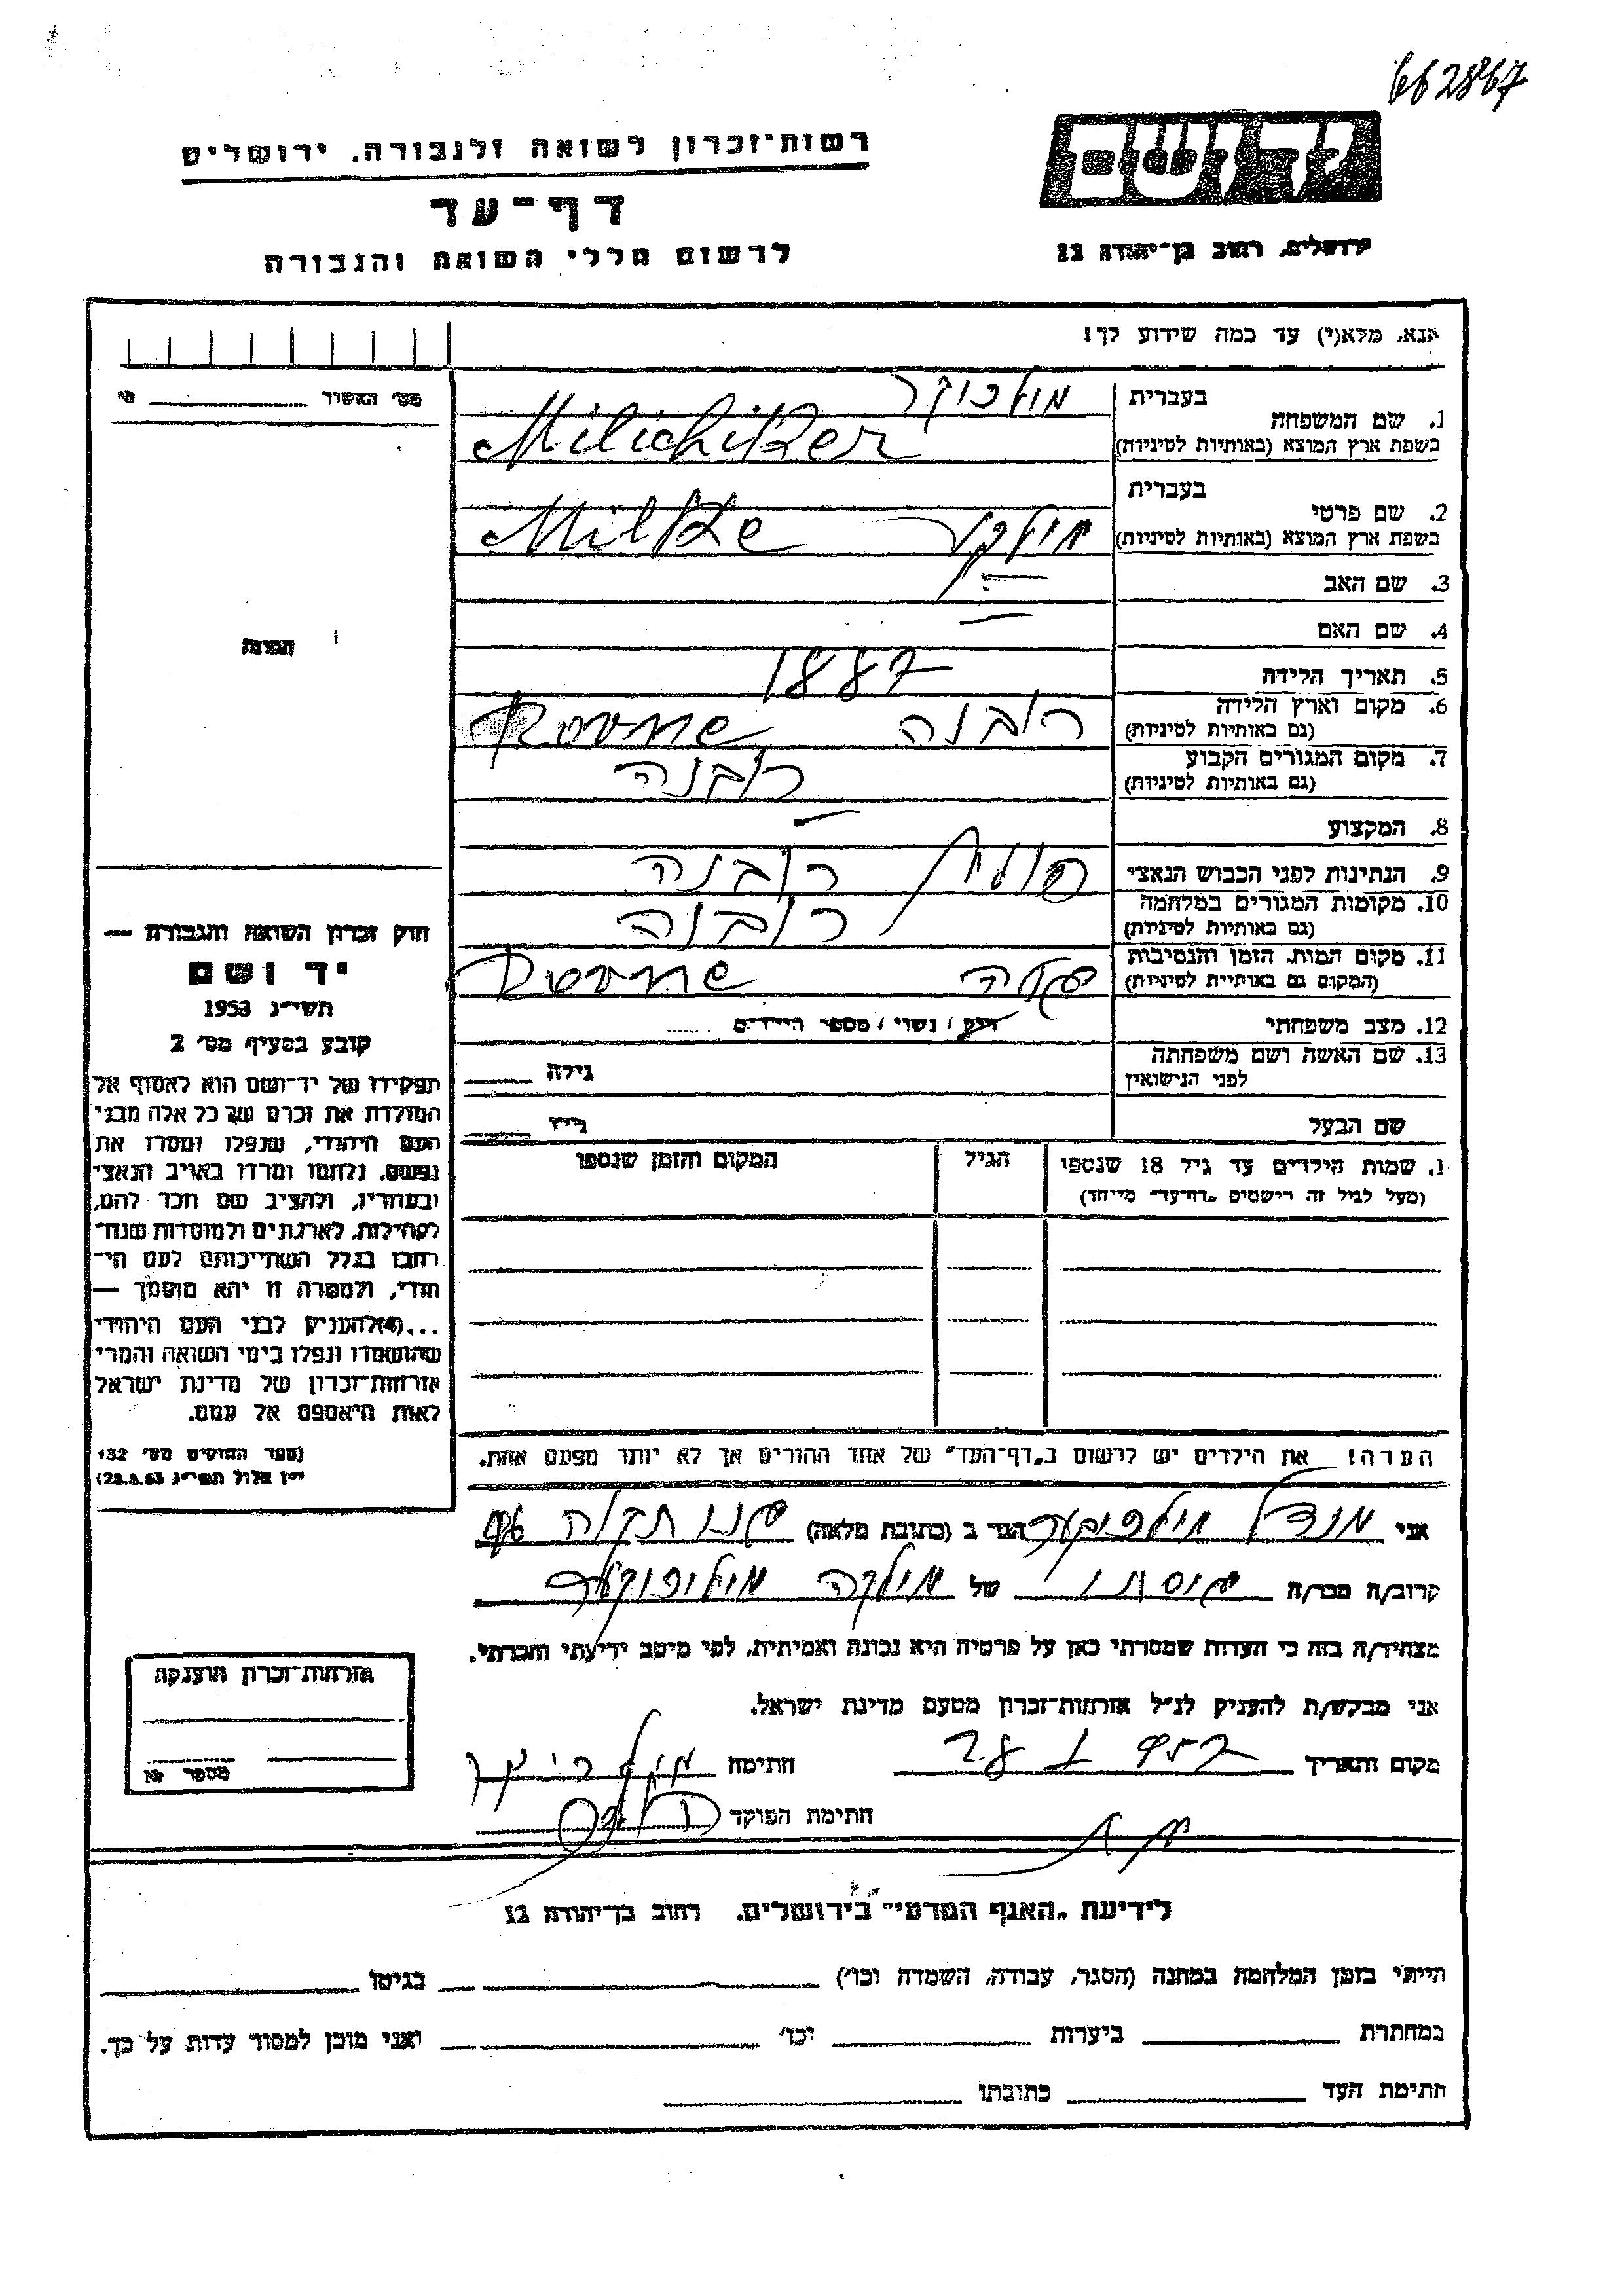 662867
יד ושם
רשות־זכרון לשואה ולגבורה. ירושלים
דף־עד
לרשום חללי השואה והגבורה
ירושלים, רחוב בן־יהודה 12
אנא, מלא(י) עד כמה שידוע לך!
מס' האשור
1. שם המשפחה
בעברית
בשפת ארץ המוצא (באותיות לטיניות)
Milichiker
2. שם פרטי
בעברית
בשפת ארץ המוצא (באותיות לטיניות)
Milke
3. שם האב
4. שם האם
5. תאריך הלידה 1887
6. מקום וארץ הלידה
(גם באותיות לטיניות)
רובנה Rovne
7. מקום המגורים הקבוע
(גם באותיות לטיניות)
רובנה
8. המקצוע
9. הנתינות לפני הכבוש הנאצי רובנה
10. מקומות המגורים במלחמה
(גם באותיות לטיניות)
רובנה
11. מקום המות, הזמן והנסיבות
(המקום גם באותיית לטיניות)
Rovne
12. מצב משפחתי רוק / נשוי / מספר הילדים
13. שם האשה ושם משפחתה
לפני הנישואין
גילה
שם הבעל
גילו
שמות הילדים עד גיל 18 שנספו הגיל המקום והזמן שנספו
(מעל לגיל זה רישמים "דף־עד" מייחד)
תמונה
חוק זכרון השואה והגבורה —
יד ושם
תשי״ג 1953
קובע בסעיף מס' 2
תפקידו של יד־ושם הוא לאסוף אל
המולדת את זכרם של כל אלה מבני
העם היהודי, שנפלו ומסרו את
נפשם, נלחמו ומרדו באויב הנאצי
ובעוזריו, ולהציב שם וזכר להם,
לקהילות, לארגונים ולמוסדות שנח־
רבו בגלל השתייכותם לעם הי־
הודי, ולמטרה זו יהא מוסמך —
...(4)להעניק לבני העם היהודי
שהושמדו ונפלו בימי השואה והמרי
אזרחות־זכרון של מדינת ישראל
לאות היאספם אל עמם.
(ספר החוקים מס' 132
י״ז אלול תשי״ג 28.8.53)
הערה! את הילדים יש לרשום ב„דף־העד" של אחד ההורים אך לא יותר מפעם אחת.
אני מנדל הגר ב (כתובת מלאה)
קרוב/ה מכר/ה של מילקה
מצהיר/ה בזה כי העדות שמסרתי כאן על פרטיה היא נכונה ואמיתית, לפי מיטב ידיעתי והכרתי.
אני מבקש/ת להעניק לנ״ל אזרחות־זכרון מטעם מדינת ישראל.
מקום ותאריך חתימה
חתימת הפוקד
אזרחות־זכרון הוענקה
מספר
לידיעת „האגף המדעי" בירושלים. רחוב בן־יהודה 12
הייתי בזמן המלחמה במחנה (הסגר, עבודה, השמדה וכו') בגיטו
במחתרת ביערות וכו' ואני מוכן למסור עדות על כך.
חתימת העד כתובתו